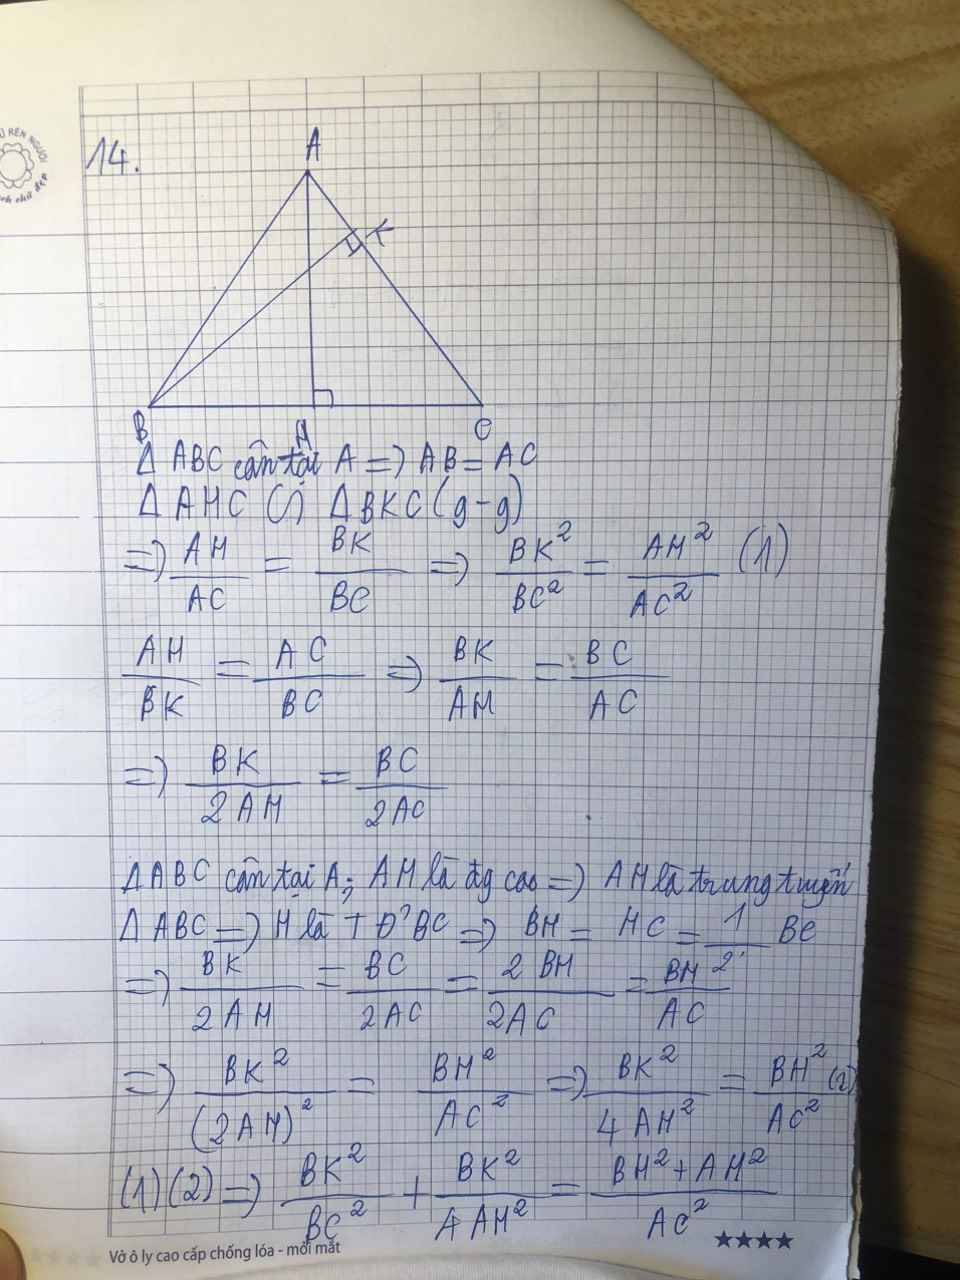 RÈN NGƯỜI
nh chữ đẹp
14.
A
K
B
H
C
Δ ABC cân tại A => AB = AC
Δ AHC (~) Δ BKC (g-g)
=> AH/AC = BK/BC => BK²/BC² = AH²/AC² (1)
AH/BK = AC/BC => BK/AH = BC/AC
=> BK/2AH = BC/2AC
ΔABC cân tại A; AH là đg cao => AH là trung tuyến
ΔABC => H là TĐ' BC => BH = HC = 1/2 BC
=> BK/2AH = BC/2AC = 2BH/2AC = BH/AC
=> BK²/(2AH)² = BH²/AC² => BK²/4AH² = BH²/AC² (2)
(1)(2) => BK²/BC² + BK²/4AH² = BH²+AH²/AC²
Vở ô ly cao cấp chống lóa - mỏi mắt